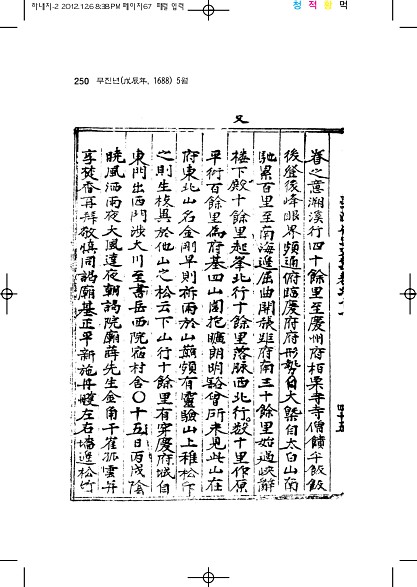 하내지-2 2012.12.6 8:38 PM 페이지67 패컴 입력
청 적 활 먹
250 무진년(戊辰年, 1688) 5월
又
眷之意溯溪行四十餘里至慶州府栢栗寺寺僧饋午飯飯
後登後峰眼界頻通俯臨慶府府形勢自大槩自太白山南
馳累百里至南海進屈曲開張距府南三十餘里始過峽辭
樓下殿十餘里起峯北行十餘里落脈西北行數十里作原
平衍百餘里爲府基四山圍抱曠朗明豁曾所未見此山在
府東北山名金剛旱則祈雨於山巔頗有靈驗山上稚松下
之則生枝異於他山之松云下山行十餘里有穿慶府城自
東門出西門涉大川至書岳西院宿村舍○十五日丙戌陰
曉風洒雨夜大風達夜朝謁院廟薛先生金角干崔孤雲幷
享焚香再拜敬愼同謁廟基正平新施丹雘左右墻邊松竹